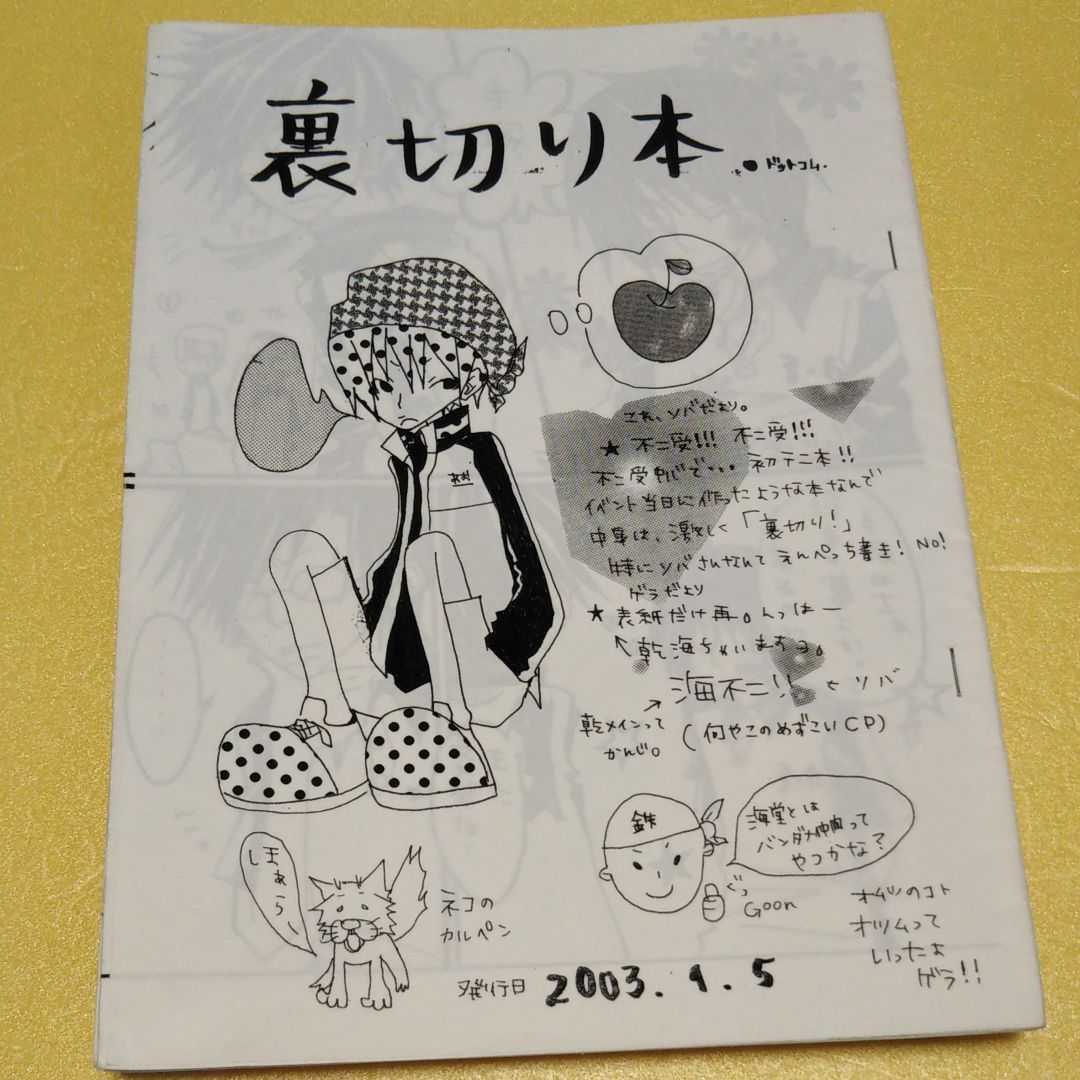 裏切り本
ドットコム
これ、ソバだよ。
★不二受!!! 不二受!!!
不二受 で… 初テニ本!!
イベント当日に作ったような本なんで
中身は、激しく「裏切り!」
特にソバさんなんて えんぺっち書き! NO!
ゲラだよ
★表紙だけ再。んっはー
↑乾海ちゃいまっす。
海不二!! ソバ
乾メインって
かんじ。
(何やこのめずこいCP)
鉄
海堂とは
バンダナ仲間って
やつかな?
ぐっ
Goon
ほぁら、
ネコの
カルペン
オムツのコト
オツムって
いったよ
ゲラ!!
発行日 2003.1.5